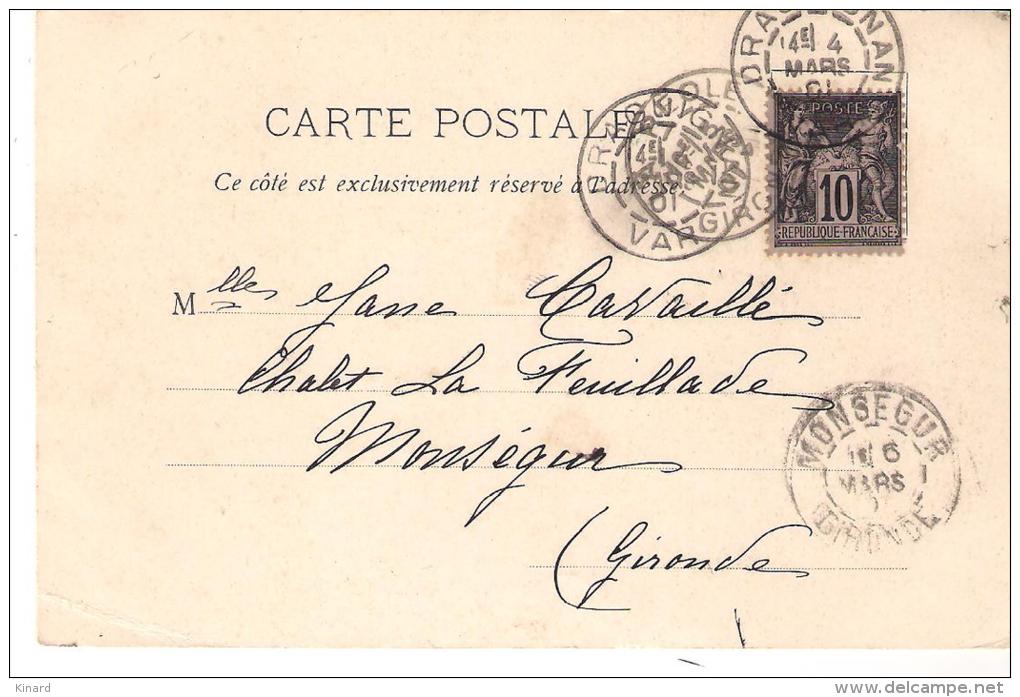 DRAGUIGNAN
4E 4
MARS
01
POSTE
10
REPUBLIQUE FRANÇAISE
CARTE POSTALE
Ce côté est exclusivement réservé à l'adresse.
01
VAR
GIRONDE
Mlles Jane Cavaillé
Chalet La Feuillade
Monségur
(Gironde
MONSEGUR
1E 6
MARS
GIRONDE
Kinard
www.delcampe.net